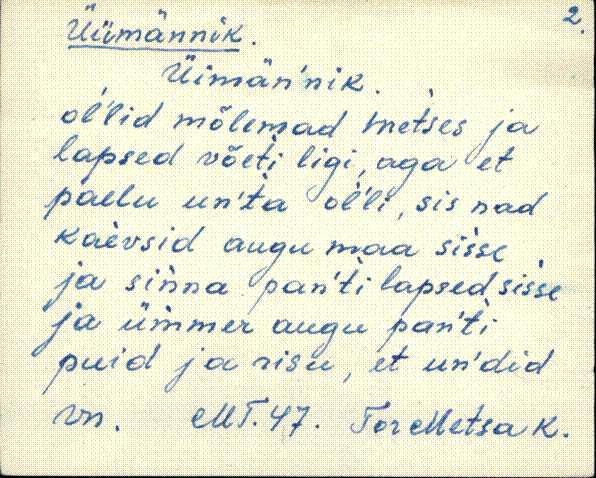 2.
Üümännik.
Üimän'nik.
ol'lid mõlemad metses ja
lapsed võeti ligi, aga et
paelu un'ta ol'li, sis nad
kaèvsid augu maa sìsse
ja sìnna pan'ti lapsed sìsse
ja ümmer augu pan'ti
puid ja risu, et un'did
Vn. MT. 47. Tor Metsa k.